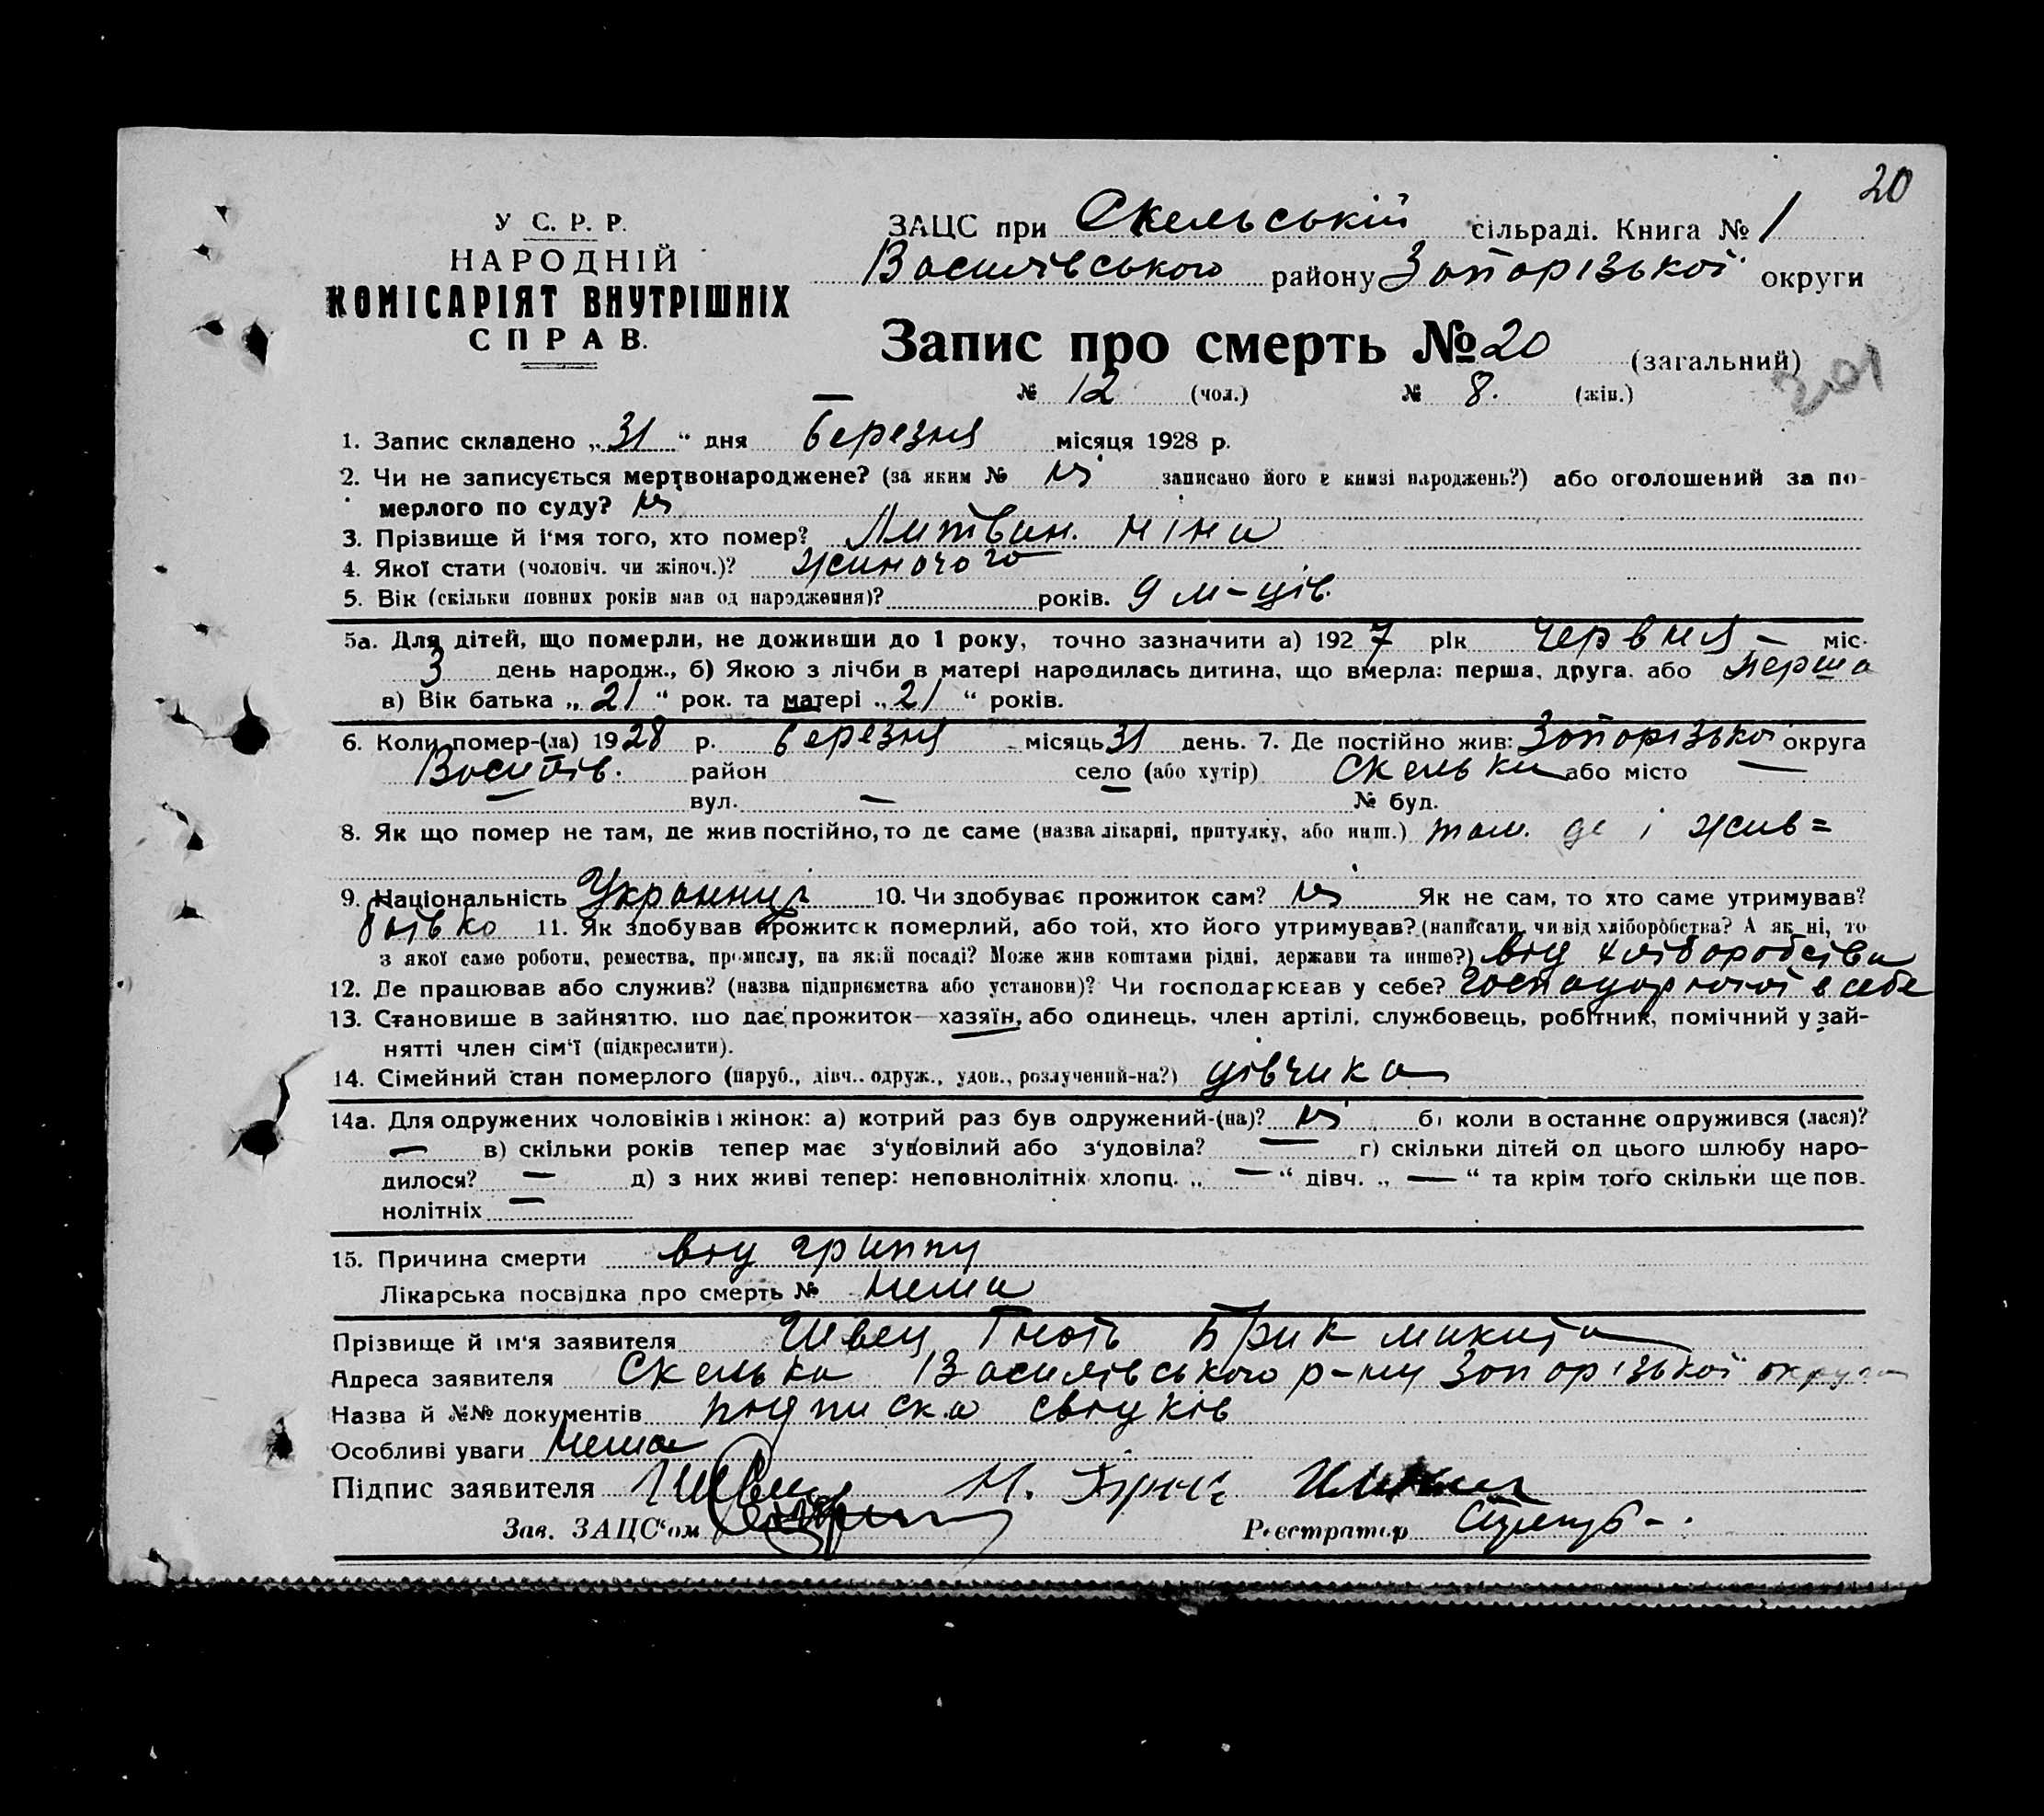 20
У С. Р. Р.
НАРОДНІЙ
КОМІСАРІЯТ ВНУТРІШНІХ
СПРАВ.
ЗАЦС при Скельській сільраді. Книга № 1
Василівського району Запорізької округи
Запис про смерть № 20 (загальний)
201
№ 12 (чол.) № 8. (жін.)
1. Запис складено „31“ дня Березня місяця 1928 р.
2. Чи не записується мертвонароджене? (за яким № ні записано його в книзі народжень?) або оголошений за по-
мерлого по суду? ні
3. Прізвище й і'мя того, хто помер? Литвин. Ніна
4. Якої стати (чоловіч. чи жіноч.)? жиночого
5. Вік (скільки повних років мав од народження)? років. 9 м-ців.
5а. Для дітей, що померли, не доживши до 1 року, точно зазначити а) 1927 рік червня – міс.
3 день народж., б) Якою з лічби в матері народилась дитина, що вмерла: перша, друга. або перша
в) Вік батька „21“ рок. та матері „21“ років.
6. Коли помер-(ла) 1928 р. березня місяць 31 день. 7. Де постійно жив: Запорізької округа
Василів. район село (або хутір) Скельки або місто —
— вул. — № буд.
8. Як що помер не там, де жив постійно, то де саме (назва лікарні, притулку, або инш.) там. де і жив =
9. Національність Українці 10. Чи здобуває прожиток сам? ні Як не сам, то хто саме утримував?
батько 11. Як здобував прожиток померлий, або той, хто його утримував? (написати, чи від хліборобства? А як ні, то
з якої саме роботи, ремества, промислу, на якій посаді? Може жив коштами рідні, держави та инше?) від хліборобства
12. Де працював або служив? (назва підприємства або установи)? Чи господарював у себе? в себе
13. Становище в зайняттю, що дає прожиток—хазяїн, або одинець, член артілі, службовець, робітник, помічний у зай-
нятті член сім'ї (підкреслити).
14. Сімейний стан померлого (паруб., дівч.. одруж., удов., розлучений-на?) дівчика
14а. Для одружених чоловіків і жінок: а) котрий раз був одружений-(на)? ні б) коли востаннє одружився (лася)?
— в) скільки років тепер має з'удовілий або з'удовіла? — г) скільки дітей од цього шлюбу наро-
дилося? — д) з них живі тепер: неповнолітніх хлопц. „ — “ дівч. „ — “ та крім того скільки ще пов.
нолітніх —
15. Причина смерти від гриппу
Лікарська посвідка про смерть № нема
Прізвище й ім'я заявителя Швец Гнать Брик Микита
Адреса заявителя Скелька Василівського р-ну Запорізької округи
Назва й №№ документів підписка свідків
Особливі уваги нема
Підпис заявителя Швец М. Брик
Зав. ЗАЦС'ом
Реєстратор